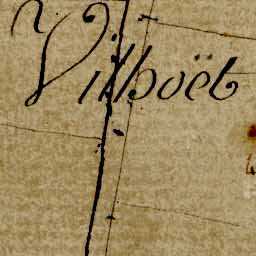 Vilboët